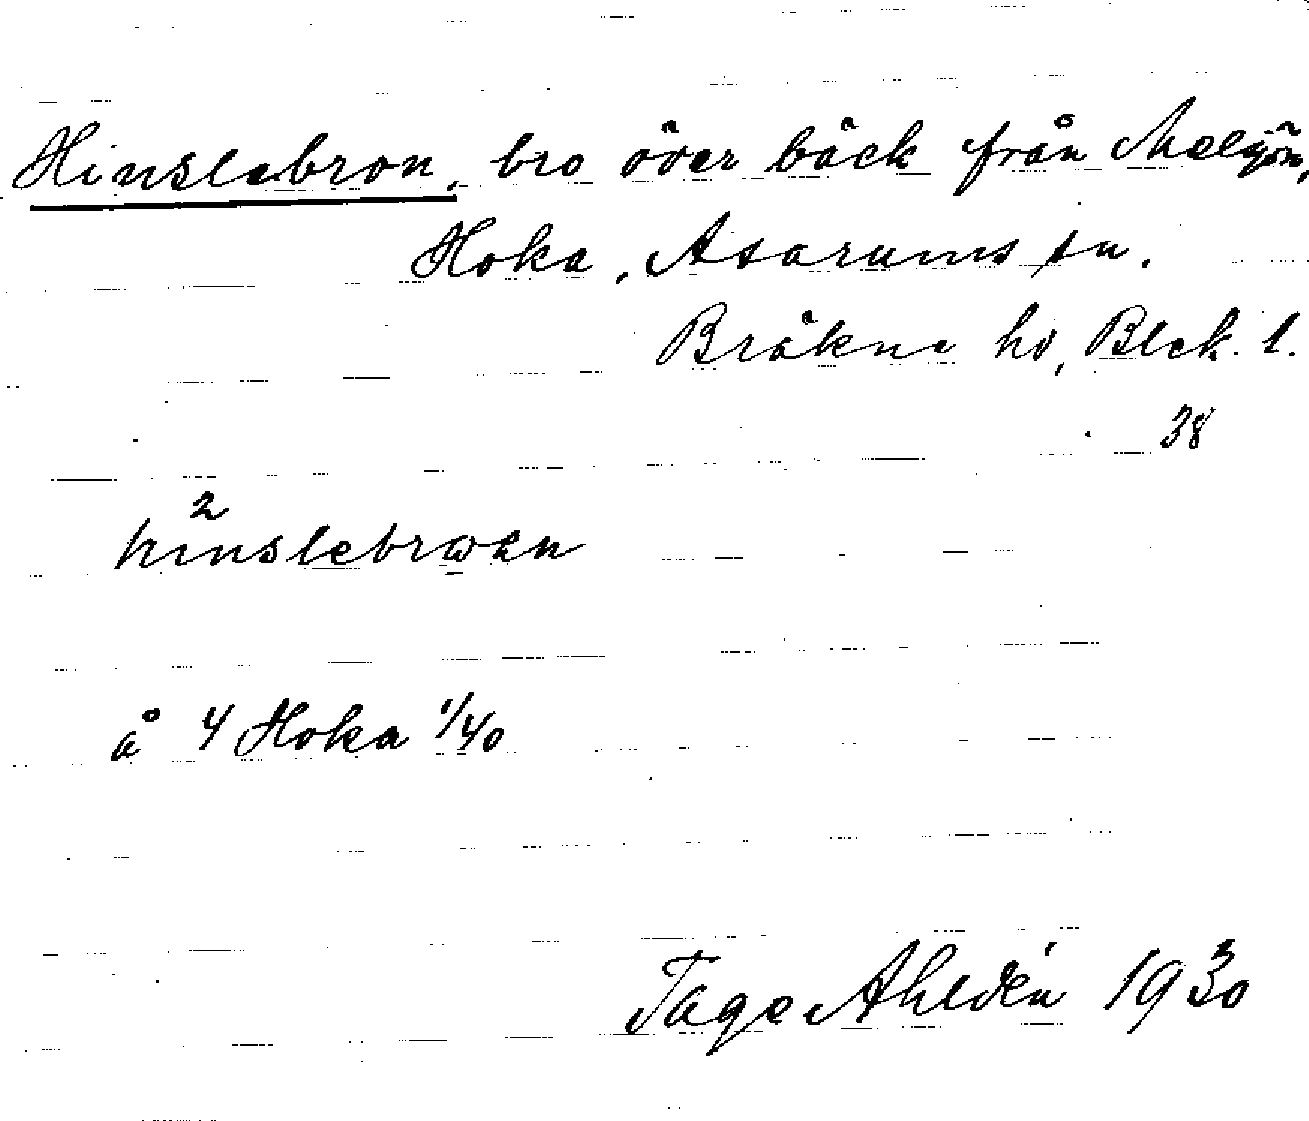 Hinslebron, bro över bäck från
Hoka, Asarums sn.
Bräkne hd, Blek. l.
38
2
hinslebrɷen
å 4 Hoka 1/40
Tage Ahldén 1930